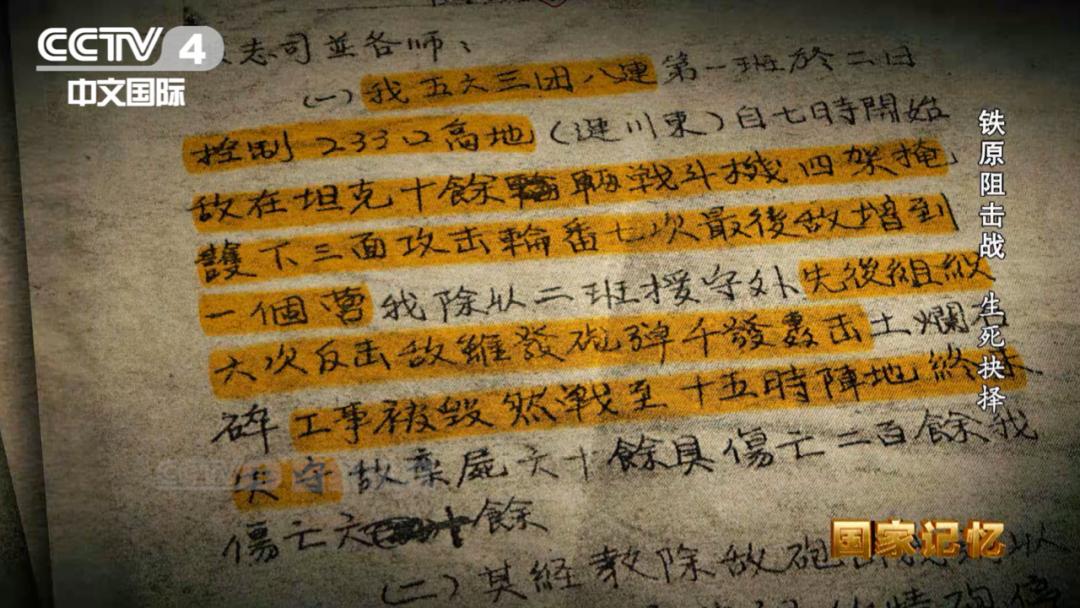 CCTV 4
中文国际
志司並各师：
(一)我五六三团八連第一班於二日
控制233口高地(連川東)自七日時開始
敌在坦克十餘輛戦斗機四架掩
護下三面攻击輪番七次最後敌增到
一個营我除以二班援守外先後組織
六次反击敌雖發砲弹千發轰击土爛石
碎工事被毀然戦至十五時陣地終未
失守敌棄屍六十餘具傷亡二百餘我
傷亡六十餘
(二)其経教除敌砲
铁原阻击战 生死抉择
国家记忆
CCTV